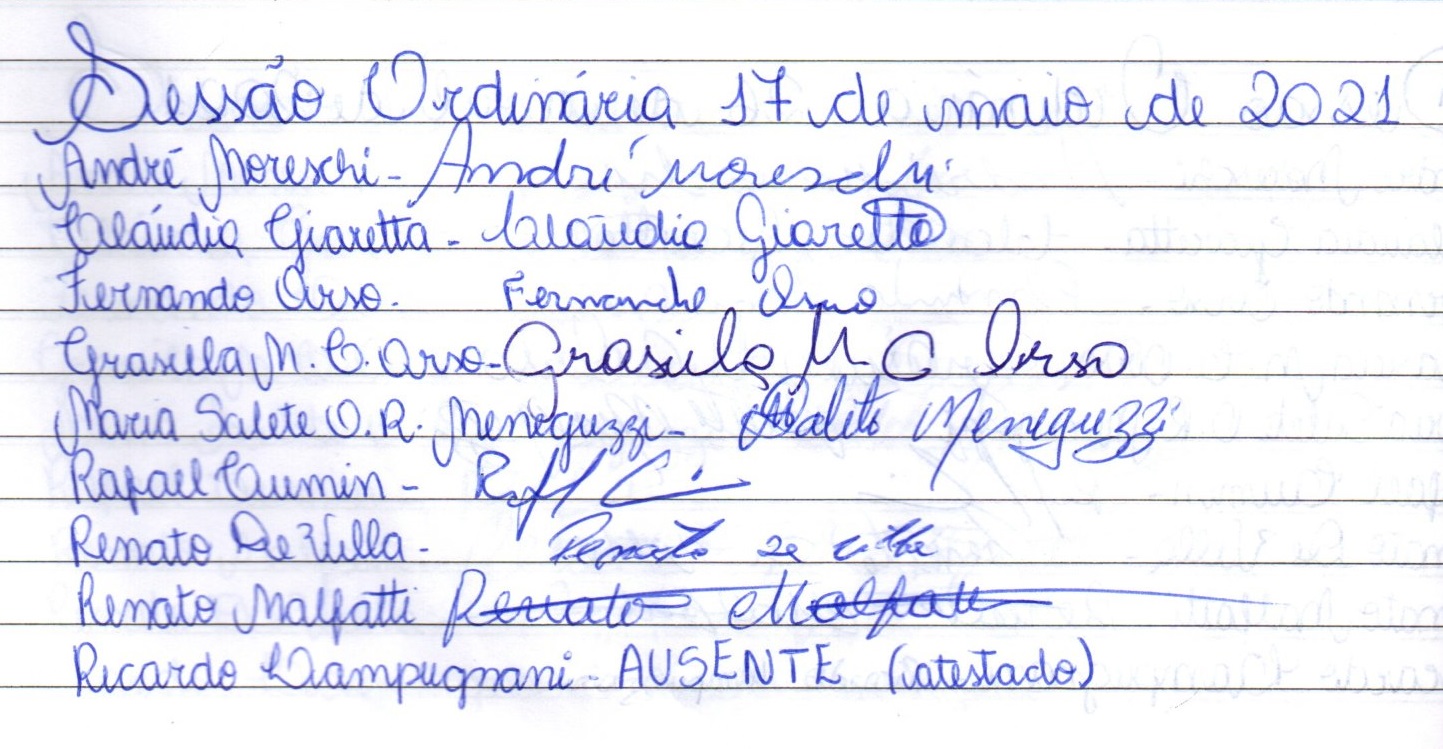 Sessão Ordinária 17 de maio de 2021
André Moreschi - André Moreschi
Claúdia Giaretta - Claúdia Giaretta
Fernando Orso. Fernando Orso
Grasiela M. C. Orso - Grasiela M C Orso
Maria Salete O. R. Meneguzzi - Salete Meneguzzi
Rafael Cumin -
Renato De Villa - Renato de villa
Renato Malfatti Renato Malfatti
Ricardo Zampugnani - AUSENTE (atestado)